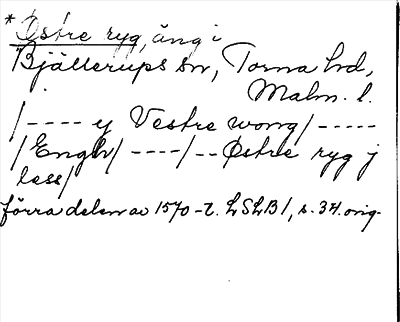 * Østre ryg, äng i
Bjällerups sn, Torna hd,
Malm. l.
/---- y Vestre wong/-----
/Engh/ ----/-- Østre ryg j
less/
förra delen av 1570-t. LSLB1, s. 34. orig.